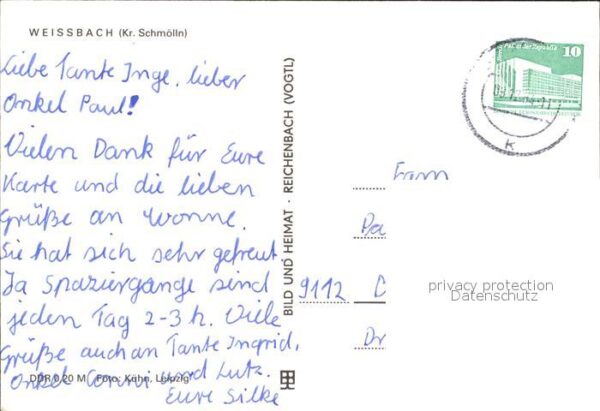 WEISSBACH (Kr. Schmölln)
Liebe Tante Inge, lieber
Onkel Paul!
Vielen Dank für Eure
Karte und die lieben
Grüße an Wonne.
Sie hat sich sehr gefreut
Ja Spaziergänge sind
jeden Tag 2-3 h. Viele
Grüße auch an Tante Ingrid,
Onkel Conni und Lutz.
Eure Silke
DDR 0,20 M Foto: Kühn, Leipzig
BILD UND HEIMAT · REICHENBACH (VOGTL)
Palast der Republik
10
K
Fam
Pa
9112 C
Dr
privacy protection
Datenschutz